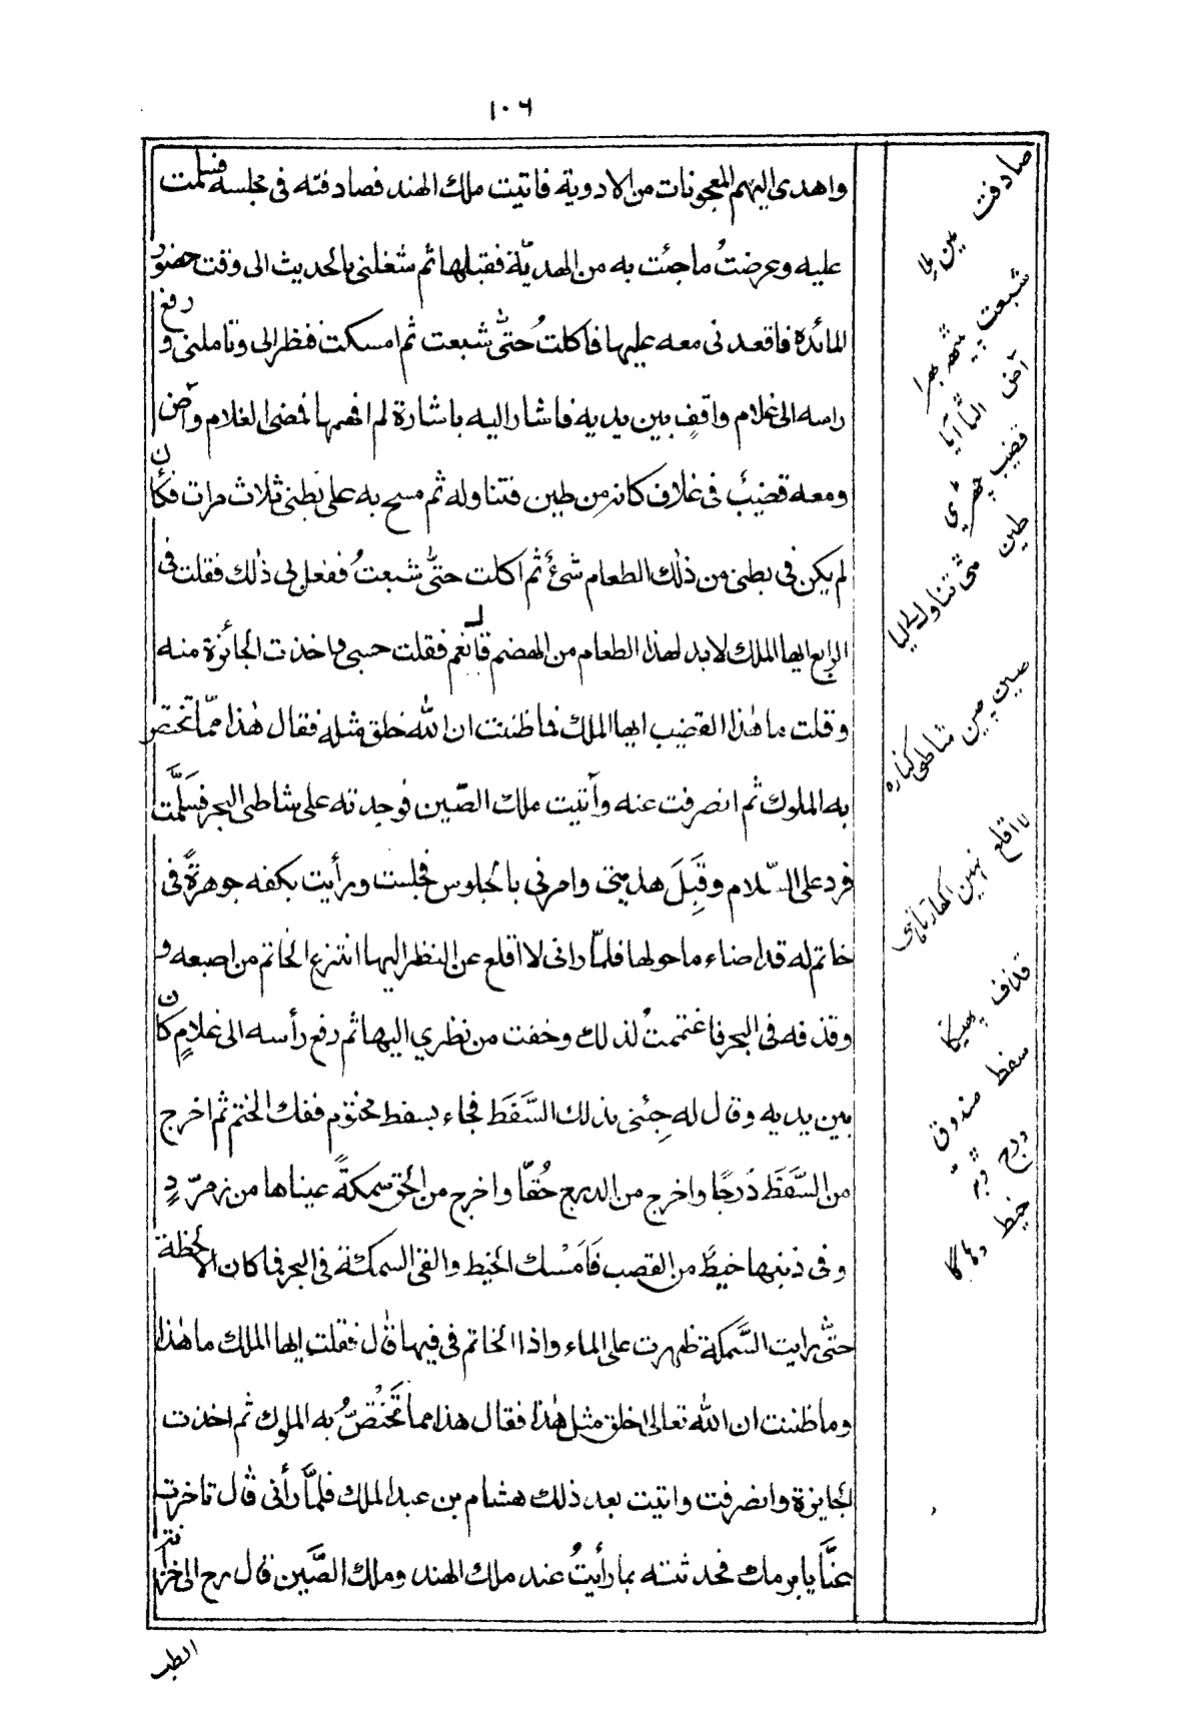 ١٠٦
واهدى اليهم المعجونات من الادوية فاتيت ملك الهند فصادفته فى مجلسه فسلمت
عليه وعرضتُ ما جئت به من الهديّة فقبلها ثم شغلنى بالحديث الى وقت حضور
المائدة فاقعدنى معه عليها فاكلتُ حتّى شبعت ثم امسكت فنظر الى وتاملنى ورفع
راسه الى غلام واقفٍ بين يديه فاشار اليه باشارة لم افهمها فمضى الغلام واٰض
ومعه قضيبٌ فى غلاف كانه من طين فتناوله ثم مسح به على بطنى ثلاث مرات فكأن
لم يكن فى بطنى من ذٰلك الطعام شئٌ ثم اكلت حتّى شبعتُ ففعل بى ذٰلك فقلت فى
الرابع ايها الملك لابد لهذا الطعام من الهضم قال نعم فقلت حسبى فاخذت الجائزة منه
وقلت ما هٰذا القضيب ايها الملك فما ظننت ان الله خلق مثله فقال هٰذا ممّا تختص
به الملوك ثم انصرفت عنه وأتيت ملك الصّين فوجدته على شاطى البحر فسَلَّمت
فرد على السّلام وقَبِلَ هديتى وامرنى بالجلوس فجلست ورأيت بكفه جوهرةً فى
خاتم له قد اضاء ما حولها فلمّا رانى لا اقلع عن النظر اليها انتزع الخاتم من اصبعه و
وقذفه فى البحر فاغتممتُ لذلك وخفت من نظري اليها ثم رفع رأسه الى غلامٍ كان
بين يديه وقال له جِئنى بذلك السَّفَط فجاء بسفط مختوم ففك الختم ثم اخرج
من السَّفَط دُرجًا واخرج من الدرج حُقّا واخرج من الحق سمكةً عيناها من زمرّدٍ
وفى ذنبها خيطٌ من القصب فَاَمْسك الخيط والقى السمكة فى البحر فما كان الا لحظة
حتّى رايت السَّمكة ظهرت على الماء واذا الخاتم فى فيها قال فقلت ايها الملك ما هٰذا
وما ظننت ان الله تعالى خلق مثل هٰذا فقال هذا مما تَخْتصُّ به الملوك ثم اخذت
الجايزة وانصرفت واتيت بعد ذلك هشام بن عبد الملك فلمَّا رأنى قال تاخرت
عنَّا يا برمك فحدثته بما رأيتُ عند ملك الهند وملك الصَّين قال رح الى خزانة
الطب
صادفت
شبعت
اٰض
قضيب
طين مٹى تناوله ليا
صين چين شاطى كناره
لا اقلع نهين
قذف پهينكا
سفط صندوق
درج ڈبّہ
خيط دهاگا